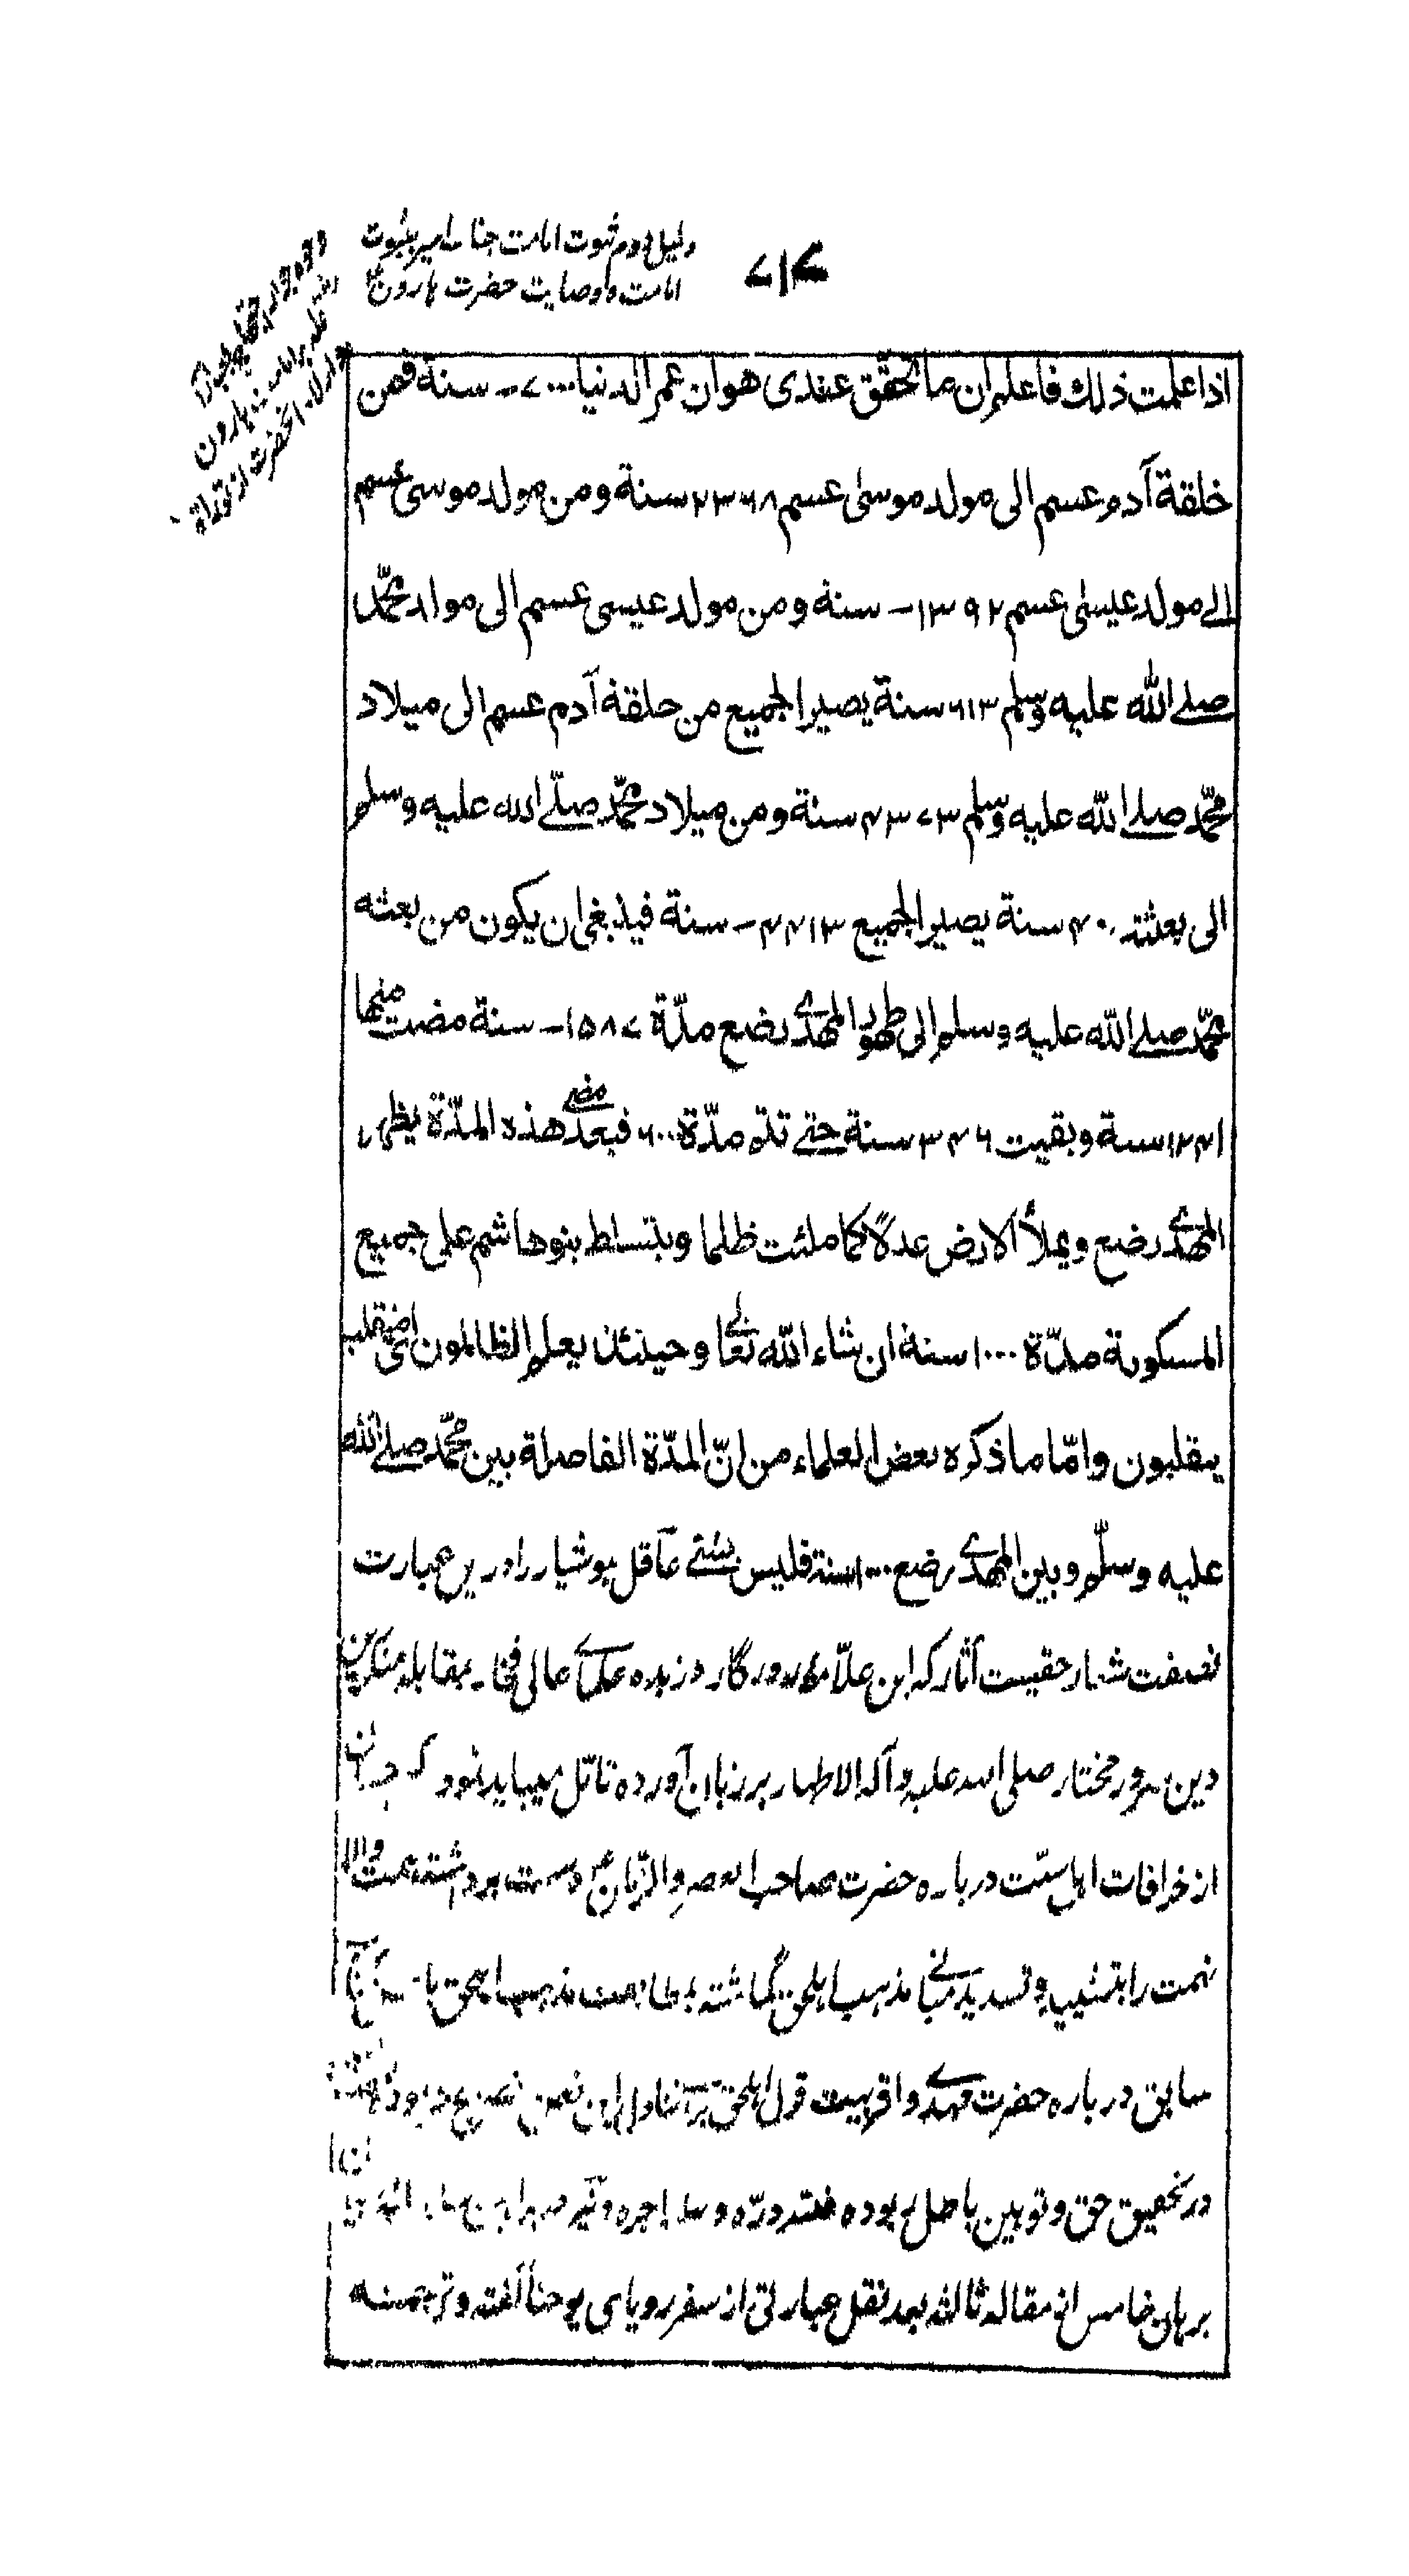 دلیل دوم ثبوت امامت جناب امیر بثبوت
امامت و وصایت حضرت هارون
۷۱۴
اذا علمت ذلك فاعلم ان ما تحقّق عندی هو ان عمر الدنیا ۷۰۰۰ سنة فمن
خلقة آدم عسم الی مولد موسیٰ عسم ۲۳۶۸ سنة ومن مولد موسی عسم
الے مولد عیسیٰ عسم ۱۳۹۲ سنة ومن مولد عیسی عسم الی مولد محمّد
صلے الله علیه وسلم ۶۱۳ سنة یصیر الجمیع من خلقة آدم عسم الی میلاد
محمّد صلے الله علیه وسلم ۴۳۷۳ سنة ومن میلاد محمّد صلّے الله علیه وسلم
الی بعثته ۴۰ سنة یصیر الجمیع ۴۴۱۳ سنة فینبغی ان یکون من بعثه
محمّد صلے الله علیه وسلم الی ظهور المهدی رضع مدّة ۱۵۸۷ سنة مضت منها
۱۲۴۱ سنة وبقیت ۳۴۶ سنة حتے تتم مدّة ۶۰۰۰ فبعد مضے هذه المدّة یظهر
المهدی رضع ویملأ الارض عدلًا کما ملئت ظلما ویتسلط بنو هاشم علی جمیع
المسکونة مدّة ۱۰۰۰ سنة ان شاء الله تعالی وحینئذ یعلم الظالمون ای منقلب
ینقلبون وامّا ما ذکره بعض العلماء من انّ المدّة الفاصلة بین محمّد صلے الله
علیه وسلّم وبین المهدی رضع ۱۰۰۰ سنة فلیس بشئے عاقل هوشیار را درین عبارت
نصفت شعار حقیت آثار که این علّامه روزگار و زبده عملای عالی فخار بمقابله منکرین
دین سرور مختار صلی الله علیه وآله الاطهار بر زبان آورده تامّل میباید نمود که چه
از خرافات اهل سنّت درباره حضرت صاحب العصر والزّمان دست برداشته همت والا
نهمت را بتثیید و تسدید مبانے مذهب اهل حق گماشته مذهب اهل حق
سابق درباره حضرت مهدے واقربیت قول اهل حق
در تحقیق حق و توهین باطل بوده
برهان خامس از مقاله ثالثه بعد نقل عبارتی از سفر رویای یوحنا گفته و ترجمته